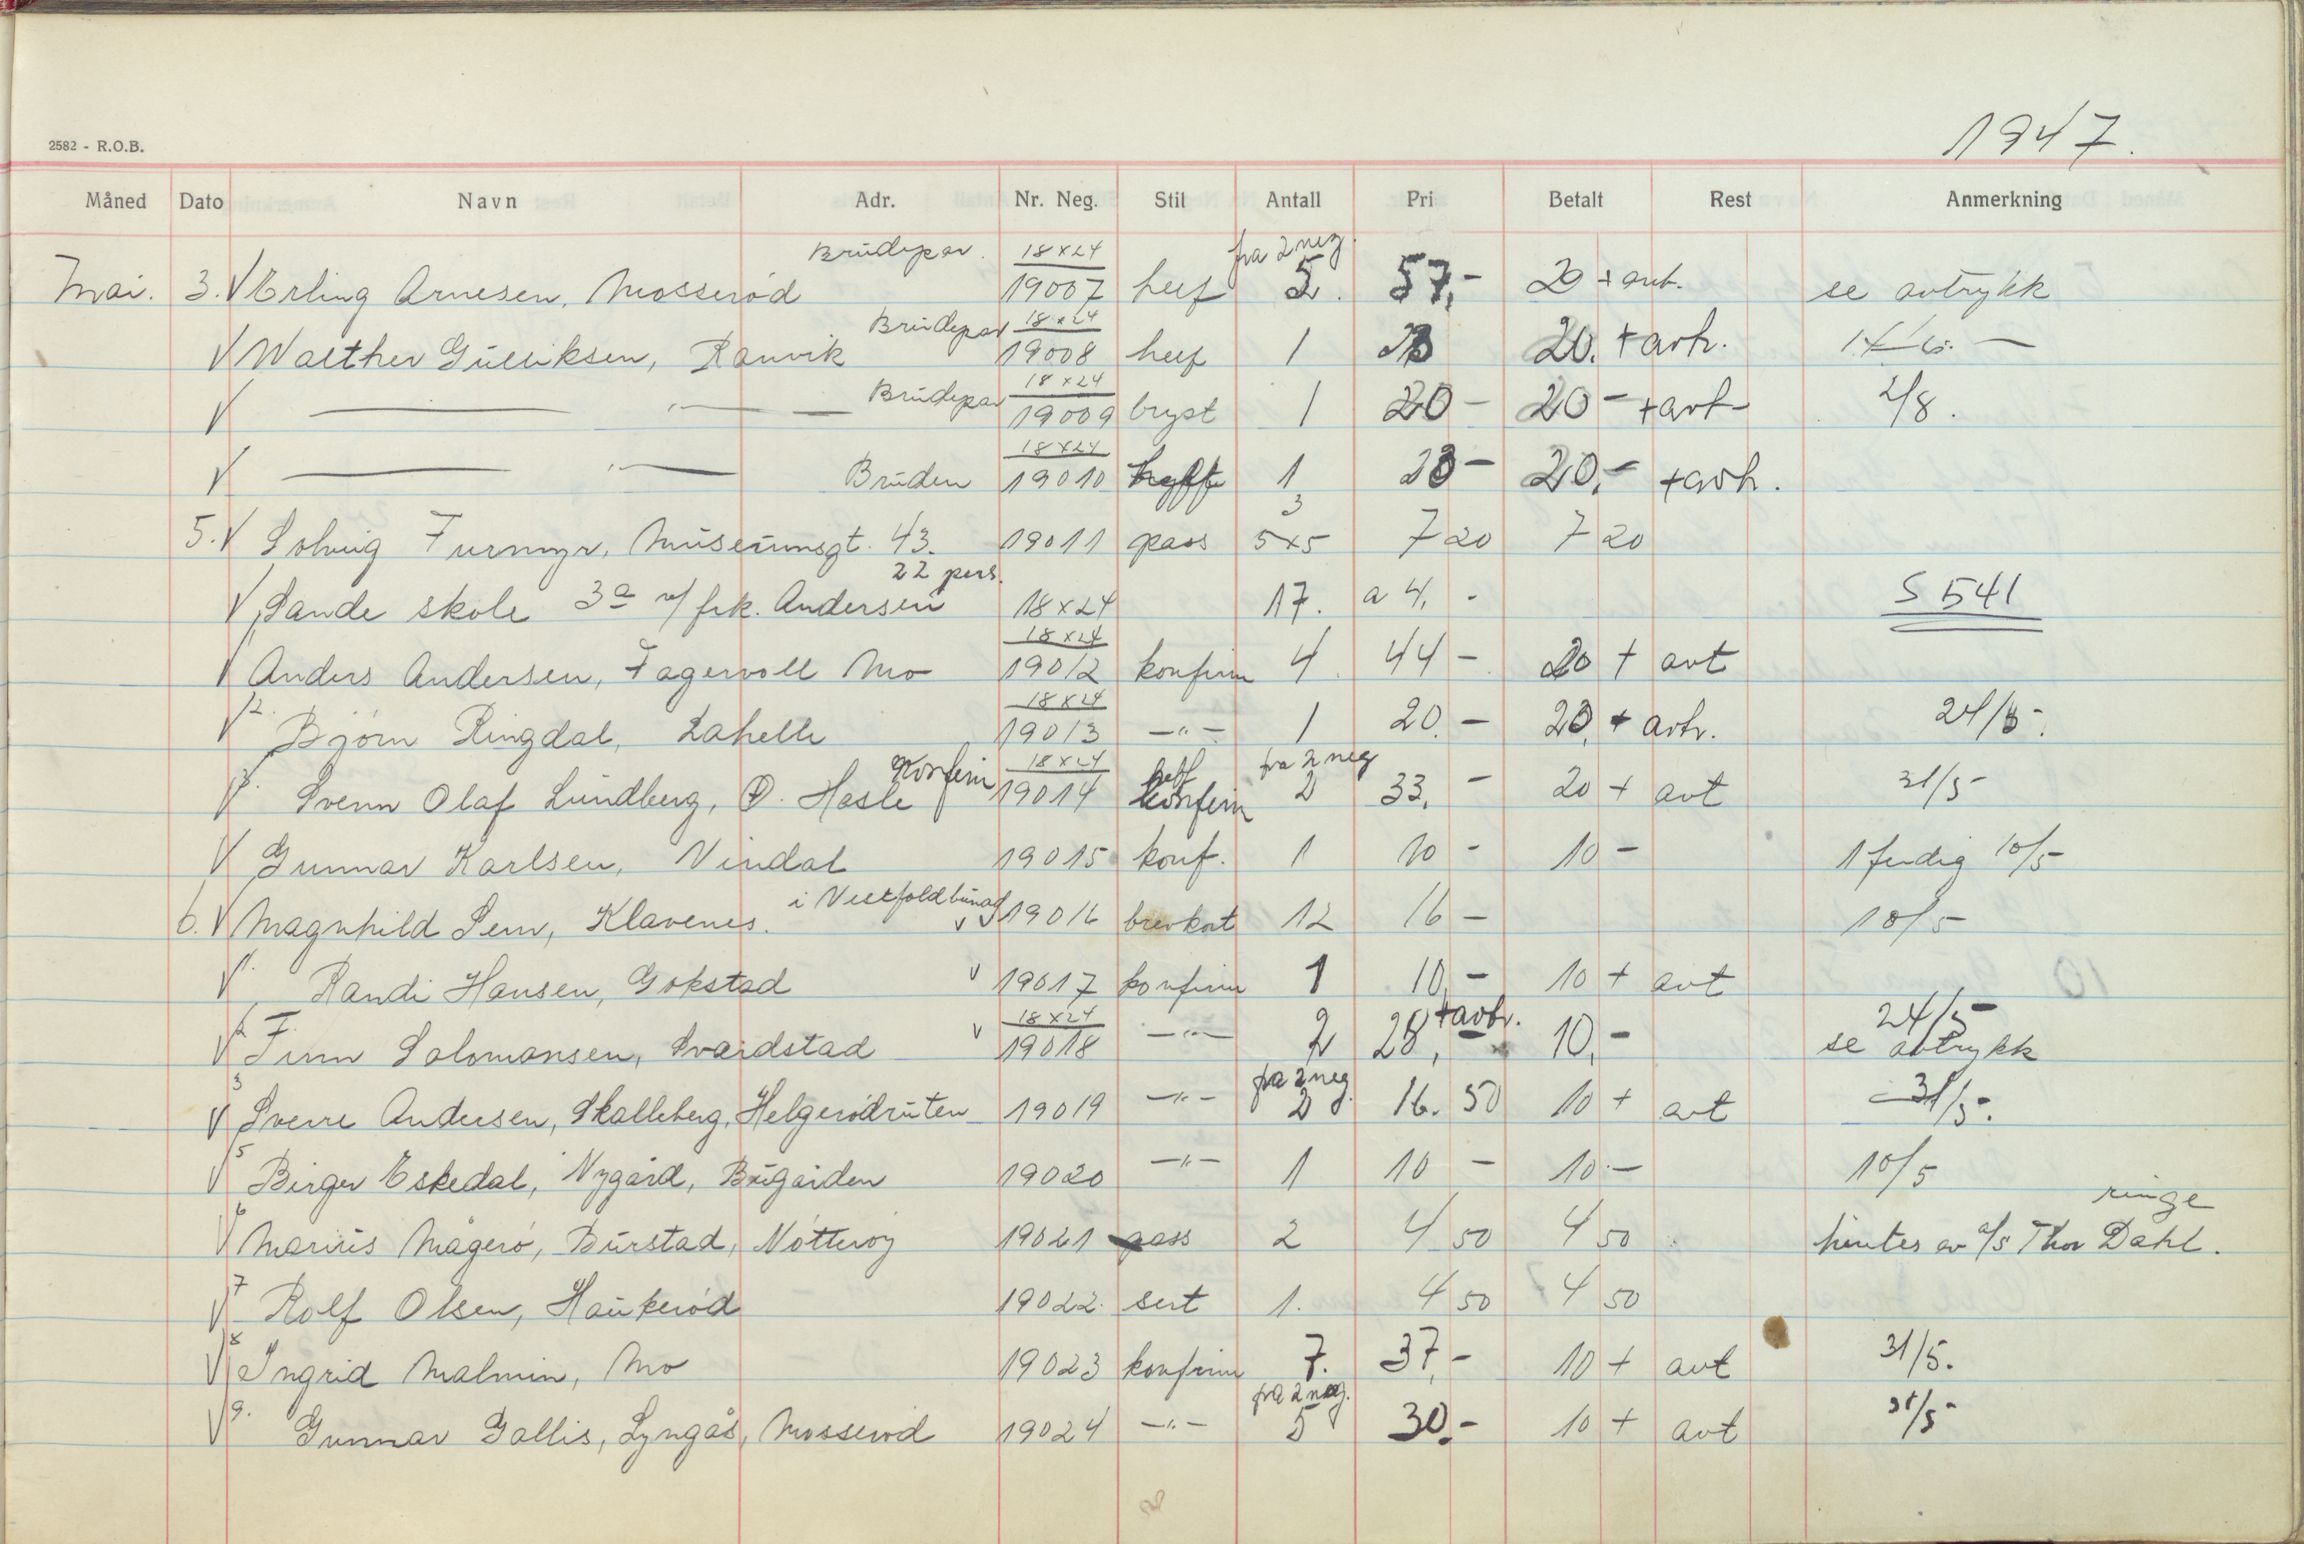 2582 - R.O.B.
1947.
Måned Dato Navn Adr. Nr. Neg. Stil Antall Pri Betalt Rest Anmerkning
Brudepar. 18x24 fra 2 neg.
Mai. 3. V Erling Arnesen, Mosserød 19007 helf 5. 57,- 20 + avt. se avtrykk
Brudepar 18x24
V Walther Gulliksen, Ranvik 19008 helf 1 20. + avtr.
Brudepar 18x24
V — " — 19009 bryst 1 20 - 20 - + avt- 2/8.
18x24
V — " — Bruden 19010 1 20,- + avtr.
3
5. V Solveig Furmyr, Museumsgt. 43. 19011 pass 5x5 7 20 7 20
22 pers.
V Sande skole 3a v/ frk. Andersen 18x24 17. a 4,- S 541
18x24
V Anders Andersen, Fagervoll Mo 19012 konfirm 4 44 - 20 + avt
2. 18x24
V Bjørn Ringdal, Lahelle 19013 -"- 1 20.- 20 + avtr. 24/5-.
3. Konfirm 18x24 helf fra 2 neg
V Svenn Olaf Lundberg, Ø. Hasle 19014 konfirm 2 33,- 20 + avt 31/5-
V Gunnar Karlsen, Vindal 19015 konf. 1 10 - 10 - 1 ferdig 10/5-
i Vestfoldbunad
6. V Magnhild Sem, Klavenes. v 19016 brevkort 12 16 - 10/5-
V 1. Randi Hansen, Gokstad v 19017 konfirm 1 10,- 10 + avt
2 18x24 + avtr. 24/5-
V Finn Salomonsen, Svardstad v 19018 -"- 2 28,- 10,- se avtrykk
3 fra 2 neg.
V Sverre Andersen, Skalleberg, Helgerødruten 19019 -"- 2 16. 50 10 + avt 31/5-.
5
V Birger Eskedal, Nygård, Bugården 19020 -"- 1 10 - 10.- 10/5
6 ringe
V Marius Magerø, Burstad, Nøtterøy 19021 pass 2 4 50 4 50 hentes av a/s Thor Dahl.
7
V Rolf Olsen, Haukerød 19022. sert 1. 4 50 4 50
8
V Ingrid Malmin, Mo 19023 konfirm 7. 37,- 10 + avt 31/5.
9. fra 2 neg.
V Gunnar Gallis, Lyngås, Mosserød 19024 -"- 5 30.- 10 + avt 31/5-